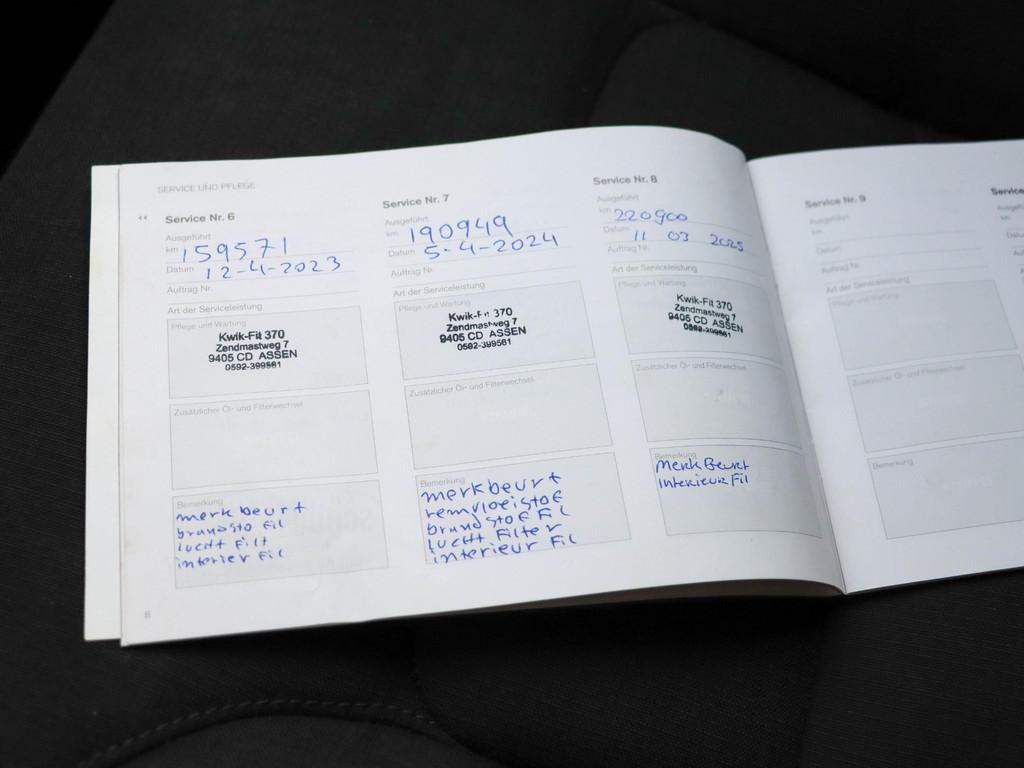 SERVICE UND PFLEGE
Service Nr. 6
Ausgeführt
km 159571
Datum 12-4-2023
Auftrag Nr.
Art der Serviceleistung
Pflege und Wartung
Kwik-Fit 370
Zendmastweg 7
9405 CD ASSEN
0592-399561
Zusätzlicher Öl- und Filterwechsel
Bemerkung
merkbeurt
brandsto fil
lucht filt
interier fil
6
Service Nr. 7
Ausgeführt
km 190949
Datum 5-4-2024
Auftrag Nr.
Art der Serviceleistung
Pflege und Wartung
Kwik-Fit 370
Zendmastweg 7
9405 CD ASSEN
0592-399561
Zusätzlicher Öl- und Filterwechsel
Bemerkung
merkbeurt
remvloeistof
brandstof Fil
lucht Filter
interieur Fil
Service Nr. 8
Ausgeführt
km 220900
Datum 11 03 2025
Auftrag Nr.
Art der Serviceleistung
Pflege und Wartung
Kwik-Fit 370
Zendmastweg 7
9405 CD ASSEN
0592-399561
Zusätzlicher Öl- und Filterwechsel
Bemerkung
Merk Beurt
Interieur Fil
Service Nr. 9
Ausgeführt
km
Datum
Auftrag Nr.
Art der Serviceleistung
Pflege und Wartung
Zusätzlicher Öl- und Filterwechsel
Bemerkung
Service
Ausgefü
km
Datum